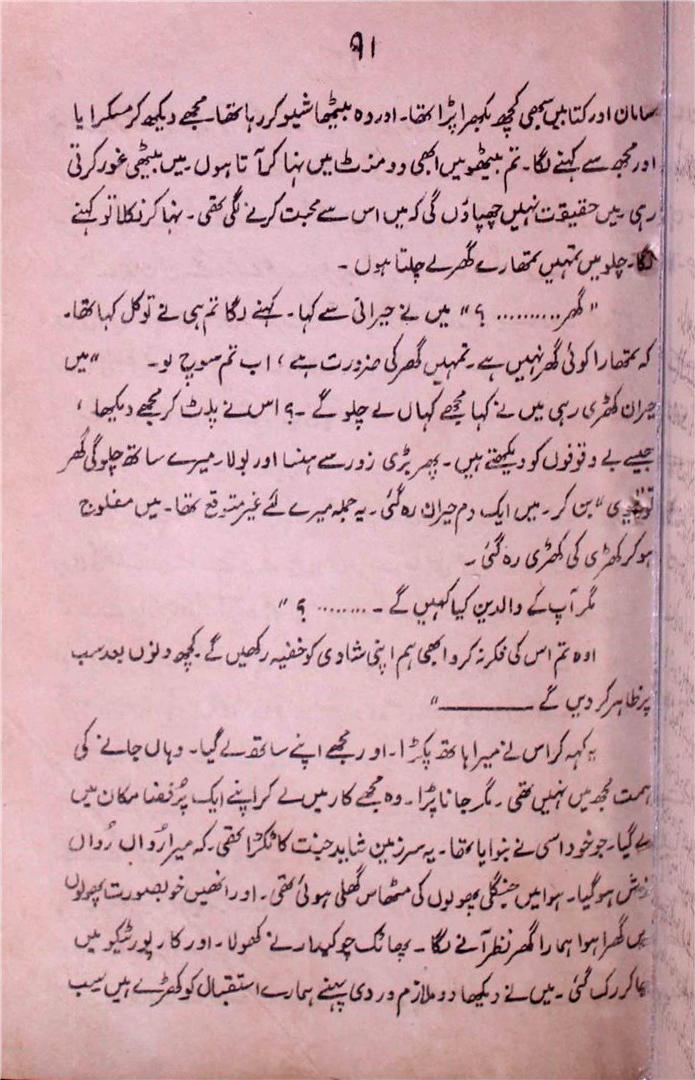 ۹۱
سامان اور کتابیں سبھی کچھ بکھرا پڑا تھا۔ اور وہ بیٹھا شیو کر رہا تھا۔ مجھے دیکھ کر مسکرایا
اور مجھ سے کہنے لگا۔ تم بیٹھو میں ابھی دو منٹ میں نہا کر آتا ہوں۔ میں بیٹھی غور کرتی
رہی۔ میں حقیقت نہیں چھپاؤں گی کہ میں اس سے محبت کرنے لگی تھی۔ نہا کر نکلا تو کہنے
لگا۔ چلو میں تمہیں تمھارے گھر لے چلتا ہوں ۔
"گھر.......... ؟" میں نے حیرانی سے کہا۔ کہنے لگا تم ہی نے تو کل کہا تھا۔
کہ تمھارا کوئی گھر نہیں ہے۔ تمہیں گھر کی ضرورت ہے، اب تم سوچ لو۔ "میں
حیران کھڑی رہی میں نے کہا مجھے کہاں لے چلو گے ۔؟ اس نے پلٹ کر مجھے دیکھا ،
جیسے بے وقوفوں کو دیکھتے ہیں۔ پھر بڑی زور سے ہنسا اور بولا۔ میرے ساتھ چلو گی گھر
بن کر۔ میں ایک دم حیران رہ گئی۔ یہ جملہ میرے لئے غیر متوقع تھا۔ میں مفلوج
ہو کر کھڑی کی کھڑی رہ گئی ۔
مگر آپ کے والدین کیا کہیں گے ۔........ ؟"
اوہ تم اس کی فکر نہ کرو ابھی ہم اپنی شادی کو خفیہ رکھیں گے۔ کچھ دنوں بعد سب
پر ظاہر کر دیں گے ـــــــــــ"
یہ کہہ کر اس نے میرا ہاتھ پکڑا۔ اور مجھے اپنے ساتھ لے گیا۔ وہاں جانے کی
ہمت مجھ میں نہیں تھی ۔ مگر جانا پڑا۔ وہ مجھے کار میں لے کر اپنے ایک پُر فضا مکان میں
لے گیا۔ جو خود اسی نے بنوایا تھا۔ یہ سرزمین شاید جنت کا ٹکڑا تھی۔ کہ میرا رُواں رُواں
خوش ہو گیا۔ ہوا میں جنگلی پھولوں کی مٹھاس گھلی ہوئی تھی۔ اور انھیں خوبصورت پھولوں
میں گھرا ہوا ہمارا گھر نظر آنے لگا۔ پھاٹک چوکیدار نے کھولا۔ اور کار پورٹیکو میں
جا کر رک گئی ۔ میں نے دیکھا دو ملازم وردی پہنے ہمارے استقبال کو کھڑے ہیں سب